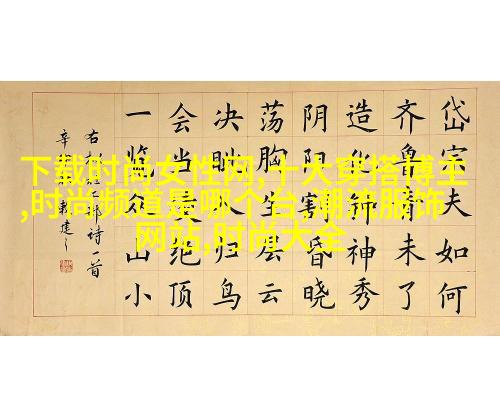 下载时尚女性网,十大穿搭博主
,时尚频道是哪个台,潮流服饰
网站,时尚大全
岱宗夫如何
齐鲁青未了
造化钟神秀
阴阳割昏晓
荡胸生层云
决眦入归鸟
会当凌绝顶
一览众山小
右 诗一首